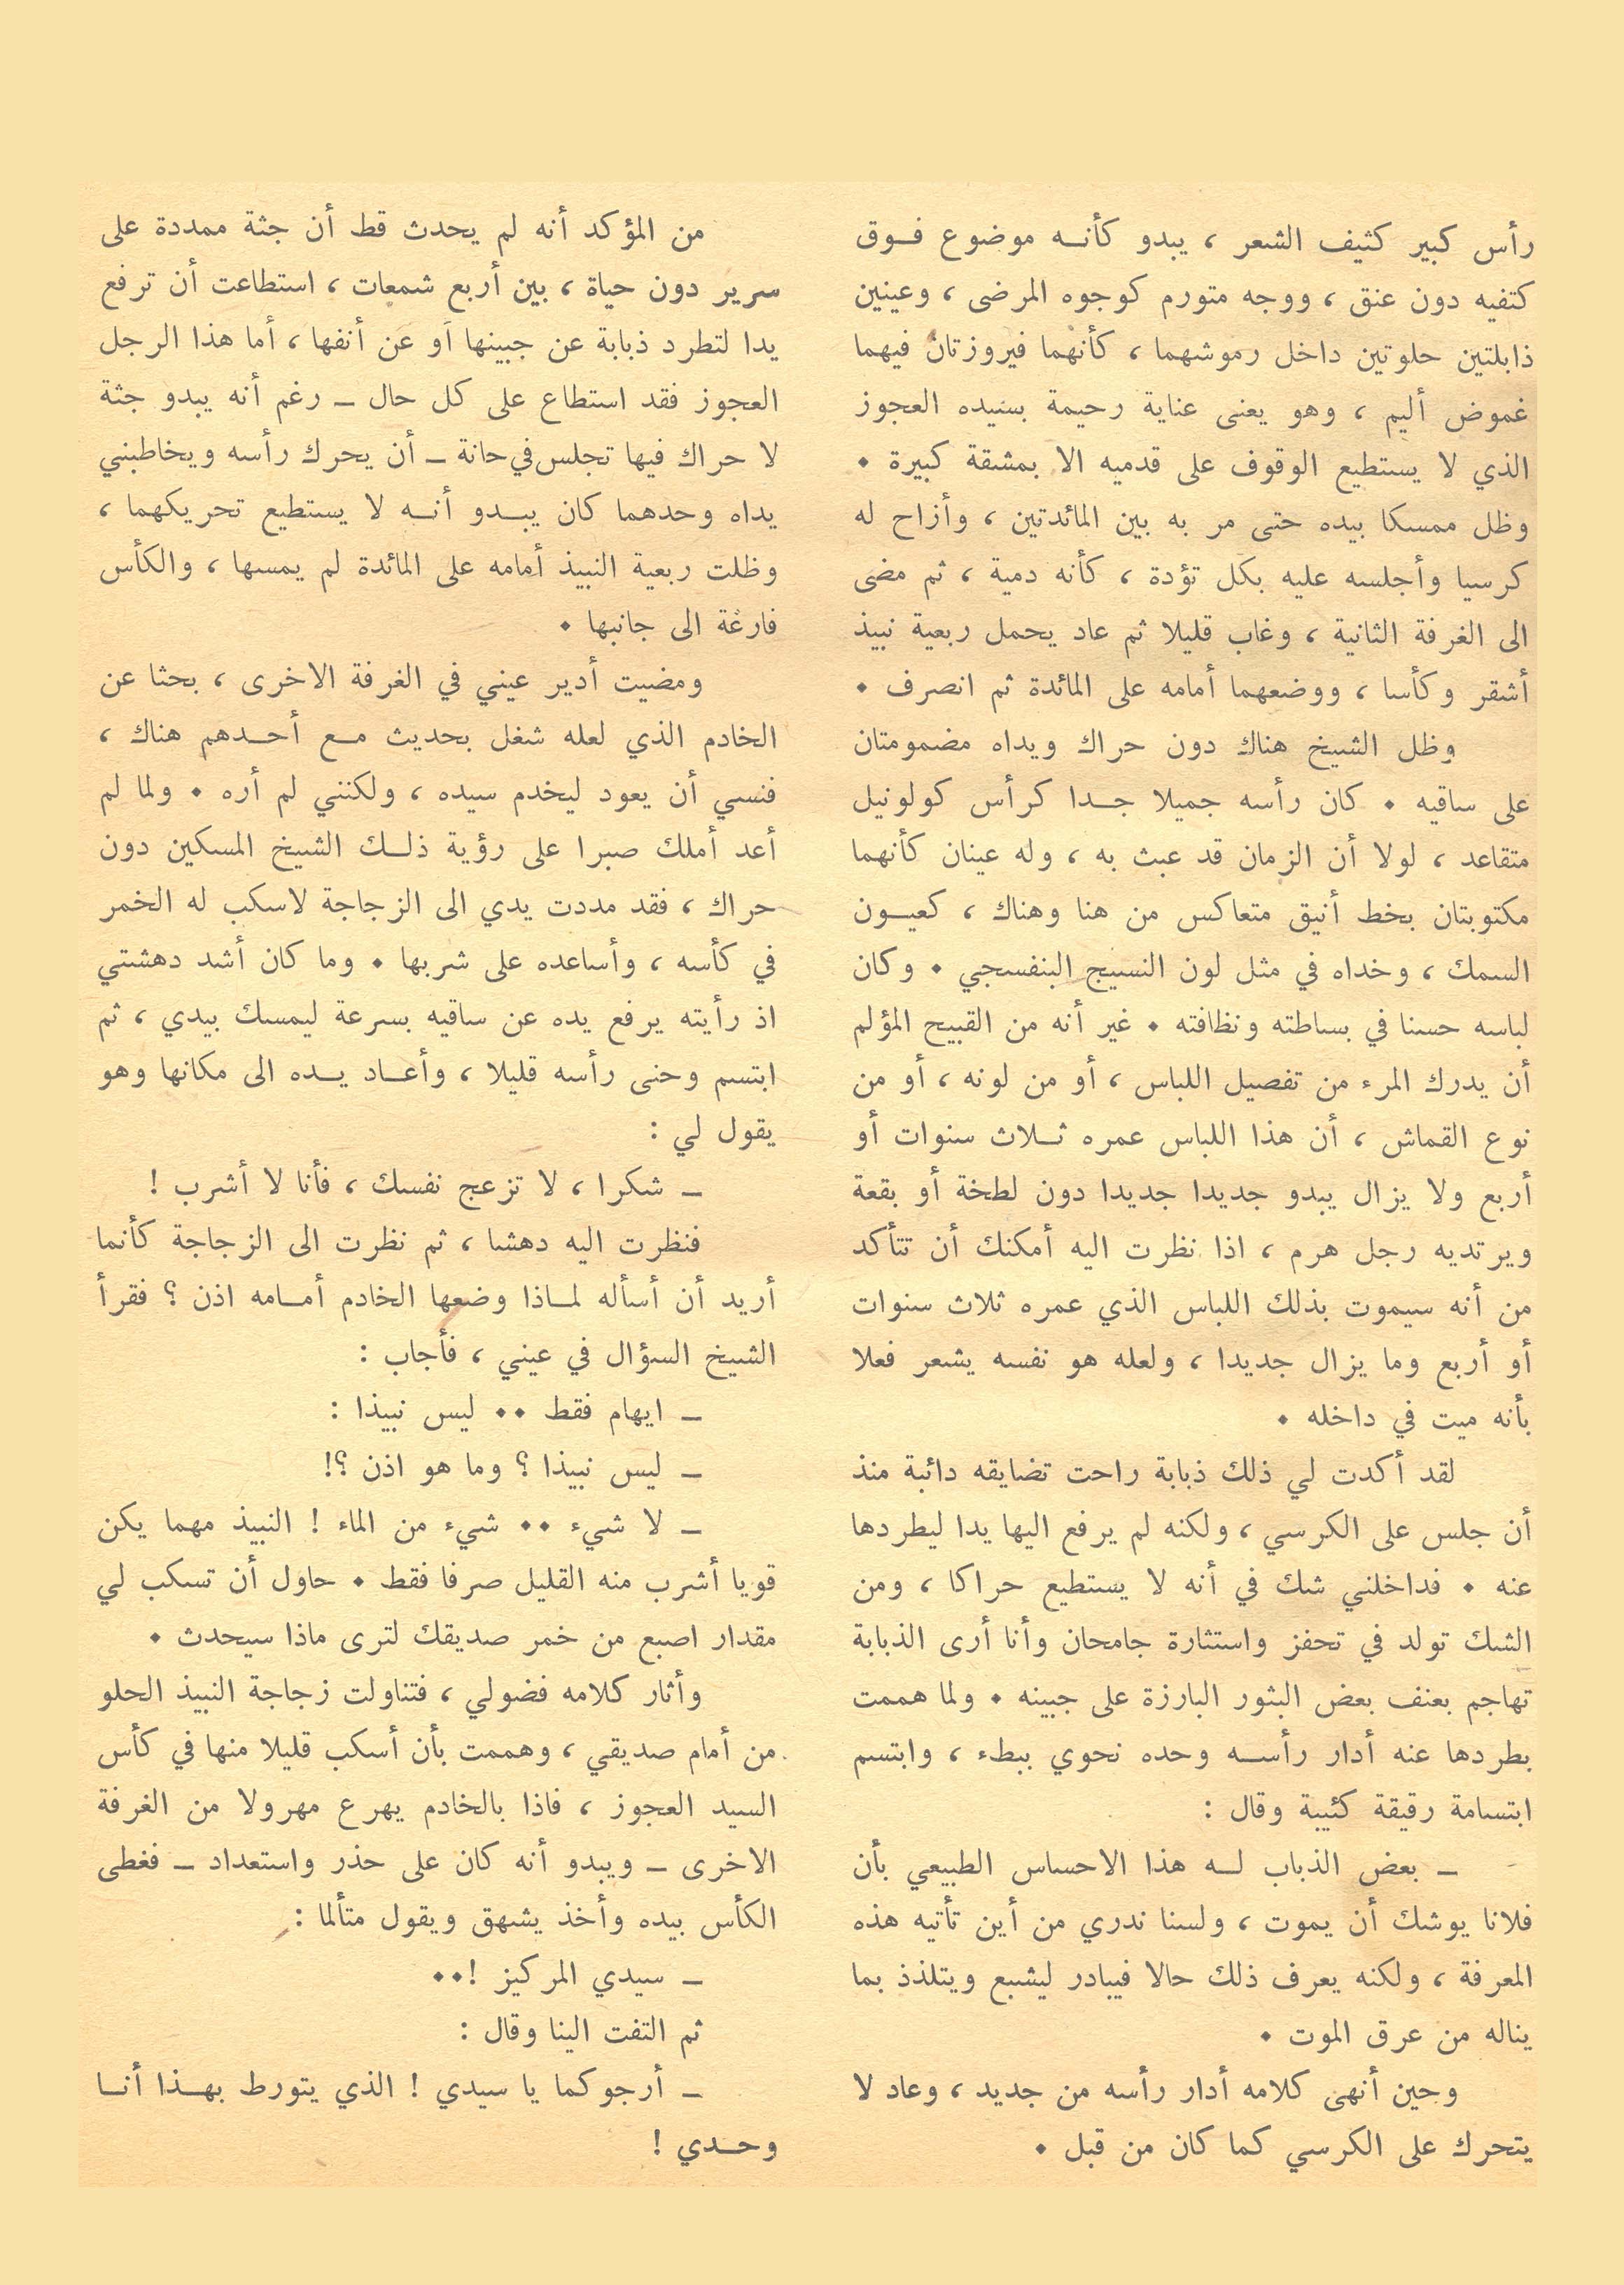 رأس كبير كثيف الشعر ، يبدو كأنـه موضوع فـوق
كتفيه دون عنق ، ووجه متورم كوجوه المرضى ، وعينين
ذابلتين حلوتين داخل رموشهما ، كأنهما فيروزتان فيهما
غموض أليم ، وهو يعنى عناية رحيمة بسيده العجوز
الذي لا يستطيع الوقوف على قدميه الا بمشقة كبيرة .
وظل ممسكا بيده حتى مر به بين المائدتين ، وأزاح له
كرسيا وأجلسه عليه بكل تؤدة ، كأنه دمية ، ثم مضى
الى الغرفة الثانية ، وغاب قليلا ثم عاد يحمل ربعية نبيذ
أشقر وكأسا ، ووضعهما أمامه على المائدة ثم انصرف .
وظل الشيخ هناك دون حراك ويداه مضمومتان
على ساقيه . كان رأسه جميلا جـدا كرأس كولونيل
متقاعد ، لولا أن الزمان قد عبث به ، وله عينان كأنهما
مكتوبتان بخط أنيق متعاكس من هنا وهناك ، كعيـون
السمك ، وخداه في مثل لون النسيج البنفسجي . وكان
لباسه حسنا في بساطته ونظافته . غير أنه من القبيح المؤلم
أن يدرك المرء من تفصيل اللباس ، أو من لونه ، أو من
نوع القماش ، أن هذا اللباس عمره ثـلاث سنوات أو
أربع ولا يزال يبدو جديدا جديدا دون لطخة أو بقعة
ويرتديه رجل هرم ، اذا نظرت اليه أمكنك أن تتأكد
من أنه سيموت بذلك اللباس الذي عمره ثلاث سنوات
أو أربع وما يزال جديدا ، ولعله هو نفسه يشعر فعلا
بأنه ميت في داخله .
لقد أكدت لي ذلك ذبابة راحت تضايقه دائبة منذ
أن جلس على الكرسي ، ولكنه لم يرفع اليها يدا ليطردها
عنه . فداخلني شك في أنه لا يستطيع حراكا ، ومن
الشك تولد في تحفز واستثارة جامحان وأنا أرى الذبابة
تهاجم بعنف بعض البثور البارزة على جبينه . ولما هممت
بطردها عنه أدار رأسـه وحده نحوي ببطء ، وابتسم
ابتسامة رقيقة كئيبة وقال :
ـ بعض الذباب لـه هذا الاحساس الطبيعي بأن
فلانا يوشك أن يموت ، ولسنا ندري من أين تأتيه هذه
المعرفة ، ولكنه يعرف ذلك حالا فيبادر ليشبع ويتلذذ بما
يناله من عرق الموت .
وحين أنهى كلامه أدار رأسه من جديد ، وعاد لا
يتحرك على الكرسي كما كان من قبل .
من المؤكد أنه لم يحدث قط أن جثة ممددة على
سرير دون حياة ، بين أربع شمعات ، استطاعت أن ترفع
يدا لتطرد ذبابة عن جبينها أو عن أنفها ، أما هذا الرجل
العجوز فقد استطاع على كل حال ـ رغم أنه يبدو جثة
لا حراك فيها تجلس في حانة ـ أن يحرك رأسه ويخاطبني
يداه وحدهما كان يبـدو أنـه لا يستطيع تحريكهما ،
وظلت ربعية النبيذ أمامه على المائدة لم يمسها ، والكأس
فارغة الى جانبها .
ومضيت أدير عيني في الغرفة الاخرى ، بحثا عن
الخادم الذي لعله شغل بحديث مـع أحـدهم هناك ،
فنسي أن يعود ليخدم سيده ، ولكنني لم أره . ولما لم
أعد أملك صبرا على رؤية ذلـك الشيخ المسكين دون
حراك ، فقد مددت يدي الى الزجاجة لاسكب له الخمر
في كأسه ، وأساعده على شربها . وما كان أشد دهشتي
اذ رأيته يرفع يده عن ساقيه بسرعة ليمسك بيدي ، ثم
ابتسم وحنى رأسه قليلا ، وأعـاد يـده الى مكانها وهو
يقول لي :
ـ شكرا ، لا تزعج نفسك ، فأنا لا أشرب !
فنظرت اليه دهشا ، ثم نظرت الى الزجاجة كأنما
أريد أن أسأله لمـاذا وضعها الخادم أمـامه اذن ؟ فقرأ
الشيخ السؤال في عيني ، فأجاب :
ـ ايهام فقط .. ليس نبيذا :
ـ ليس نبيذا ؟ وما هو اذن ؟!
ـ لا شيء .. شيء من الماء ! النبيذ مهما يكن
قويا أشرب منه القليل صرفا فقط . حاول أن تسكب لي
مقدار اصبع من خمر صديقك لترى ماذا سيحدث .
وأثار كلامه فضولي ، فتناولت زجاجة النبيذ الحلو
من أمام صديقي ، وهممت بأن أسكب قليلا منها في كأس
السيد العجوز ، فاذا بالخادم يهرع مهرولا من الغرفة
الاخرى ـ ويبدو أنه كان على حذر واستعداد ـ فغطى
الكأس بيده وأخذ يشهق ويقول متألما :
ـ سيدي المركيز !..
ثم التفت الينا وقال :
ـ أرجوكما يا سيدي ! الذي يتورط بهـذا أنـا
وحـدي !